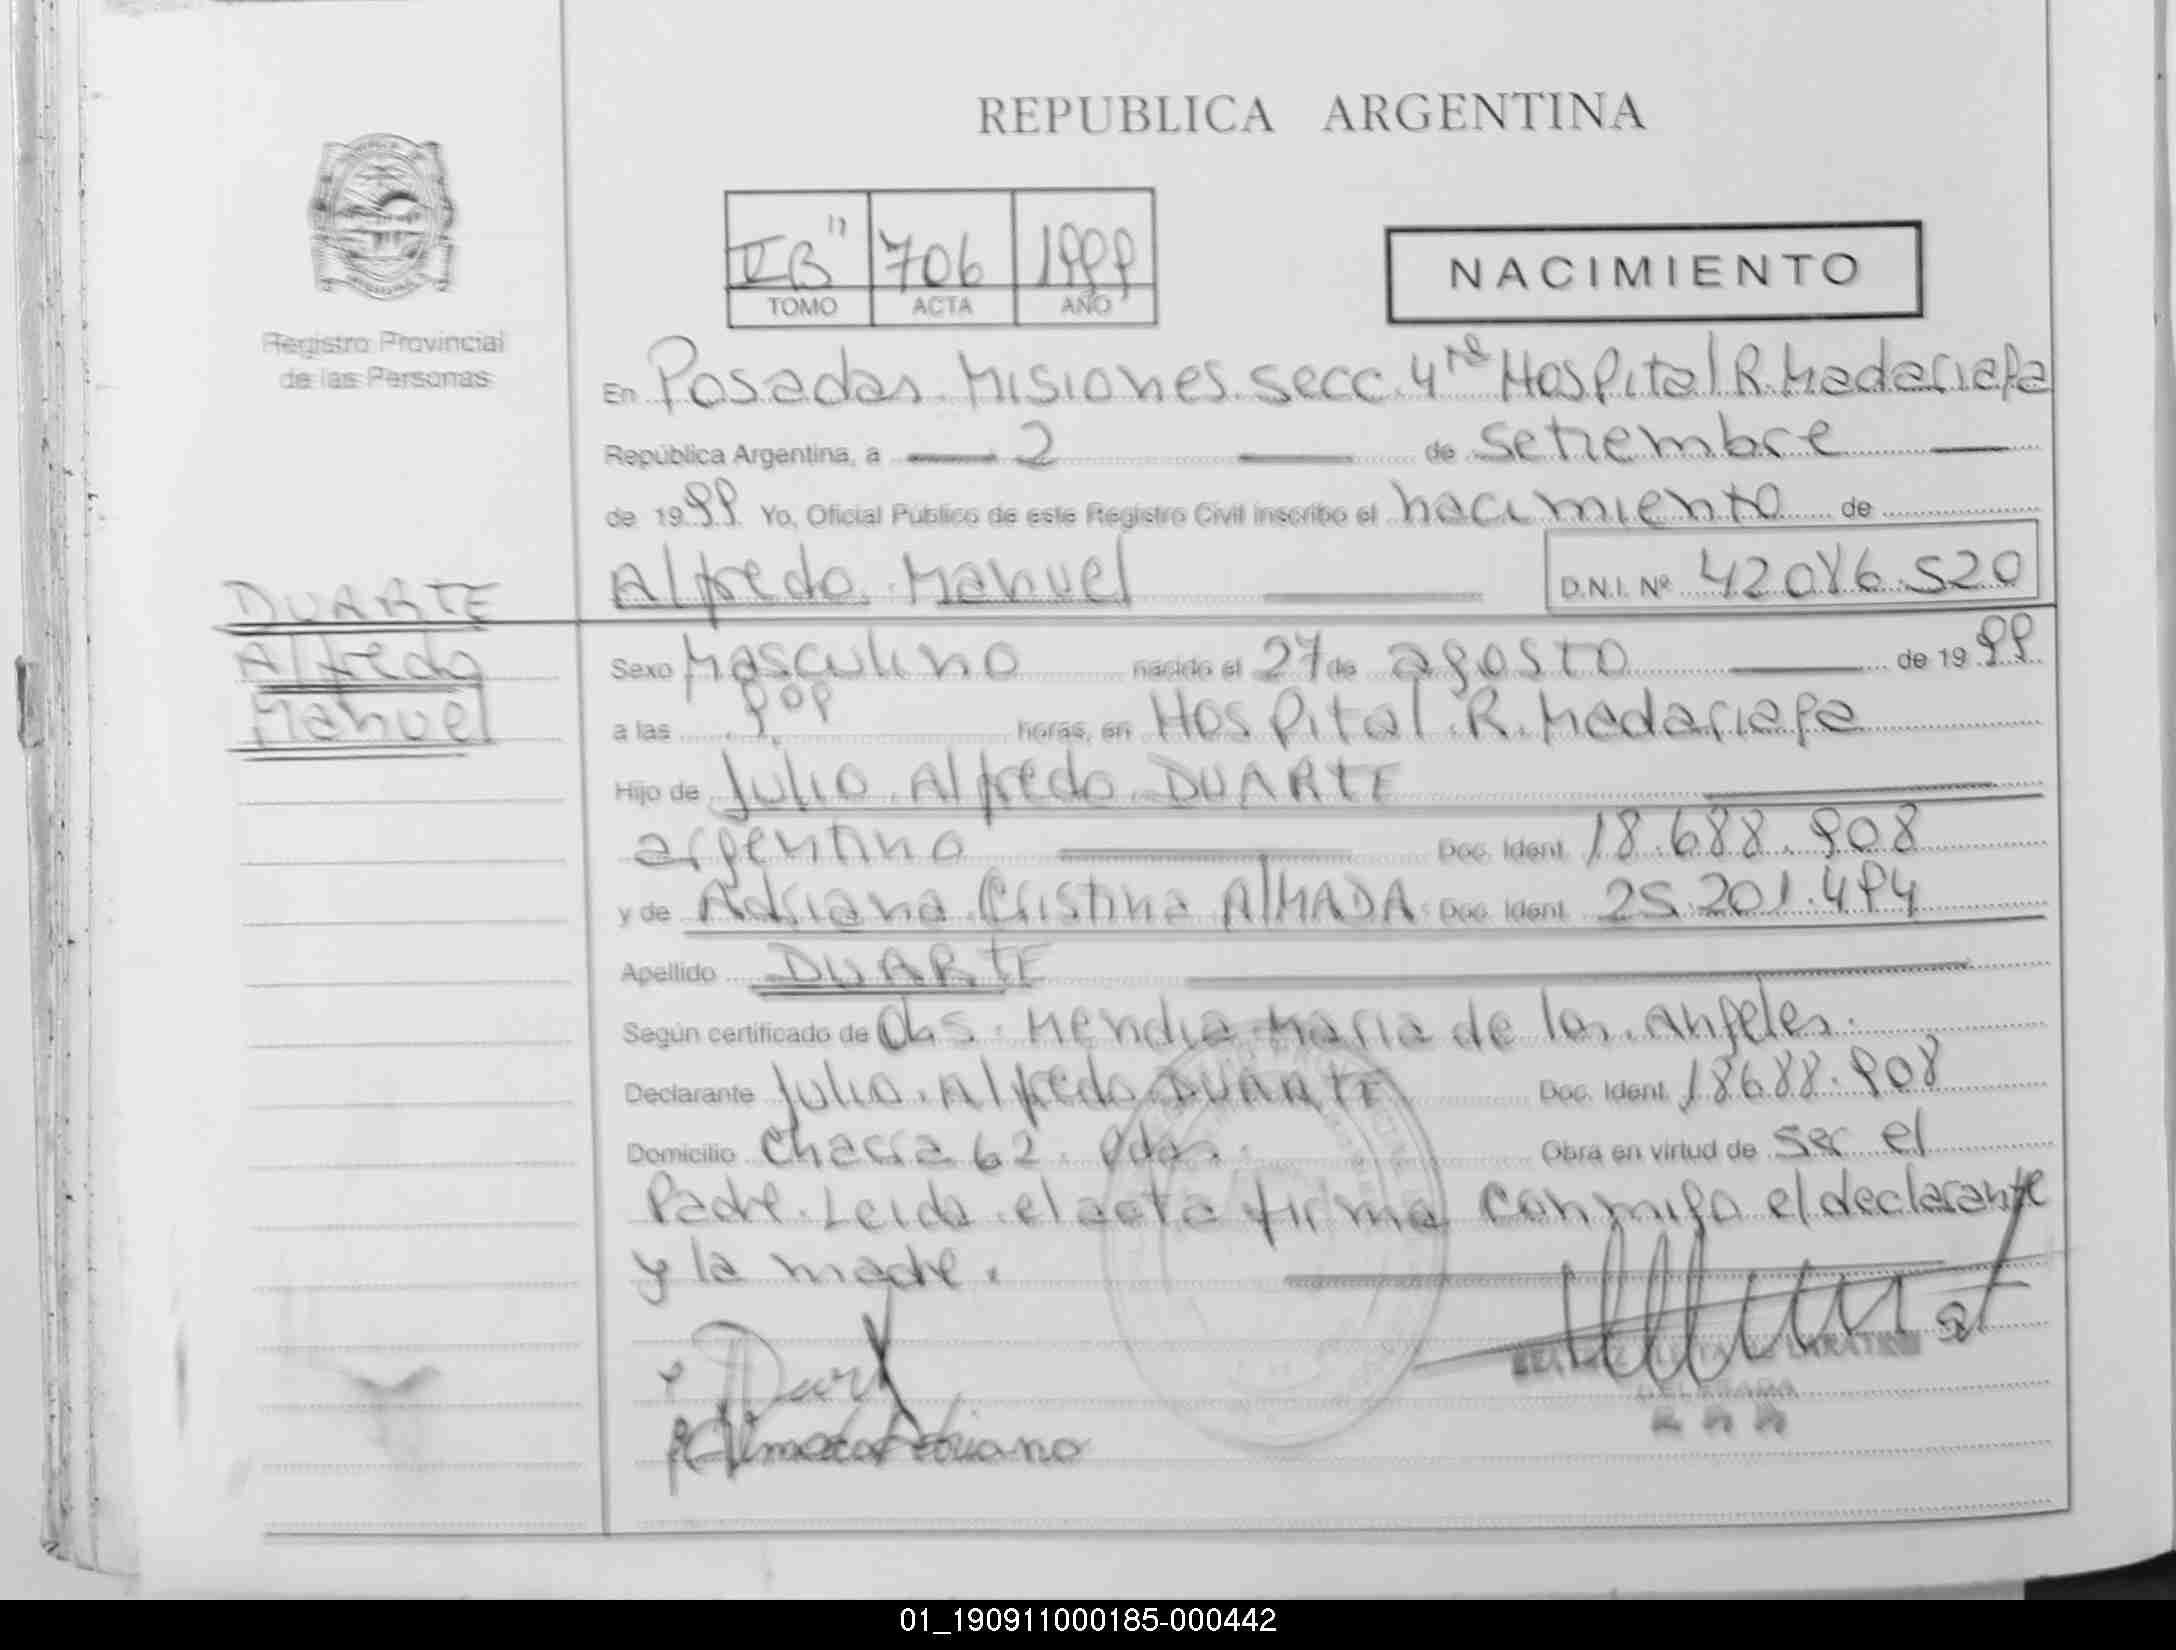 REPUBLICA ARGENTINA
706 1999
TOMO ACTA AÑO
NACIMIENTO
Registro Provincial
de las Personas
En Posadas. Misiones. secc. 4ta Hospital R. Madariaga
República Argentina, a 2 de Setiembre
de 1999 Yo, Oficial Público de este Registro Civil inscribo el nacimiento de
Alfredo Manuel D.N.I. Nº 42086.520
DUARTE
Alfredo
Manuel
Sexo Masculino nacido el 27 de agosto de 1999
a las horas, en Hospital R. Madariaga
Hijo de Julio Alfredo DUARTE
argentino Doc. Ident. 18.688.908
y de Adriana Cristina AlMADA Doc. Ident. 25.201.494
Apellido DUARTE
Según certificado de Mendia Maria de los Angeles.
Declarante Julio Alfredo DUARTE Doc. Ident. 18688.908
Domicilio Chacra 62. Pdas. Obra en virtud de ser el
Padre. Leida el acta firma conmigo el declarante
y la madre.
DELEGADA
01_190911000185-000442